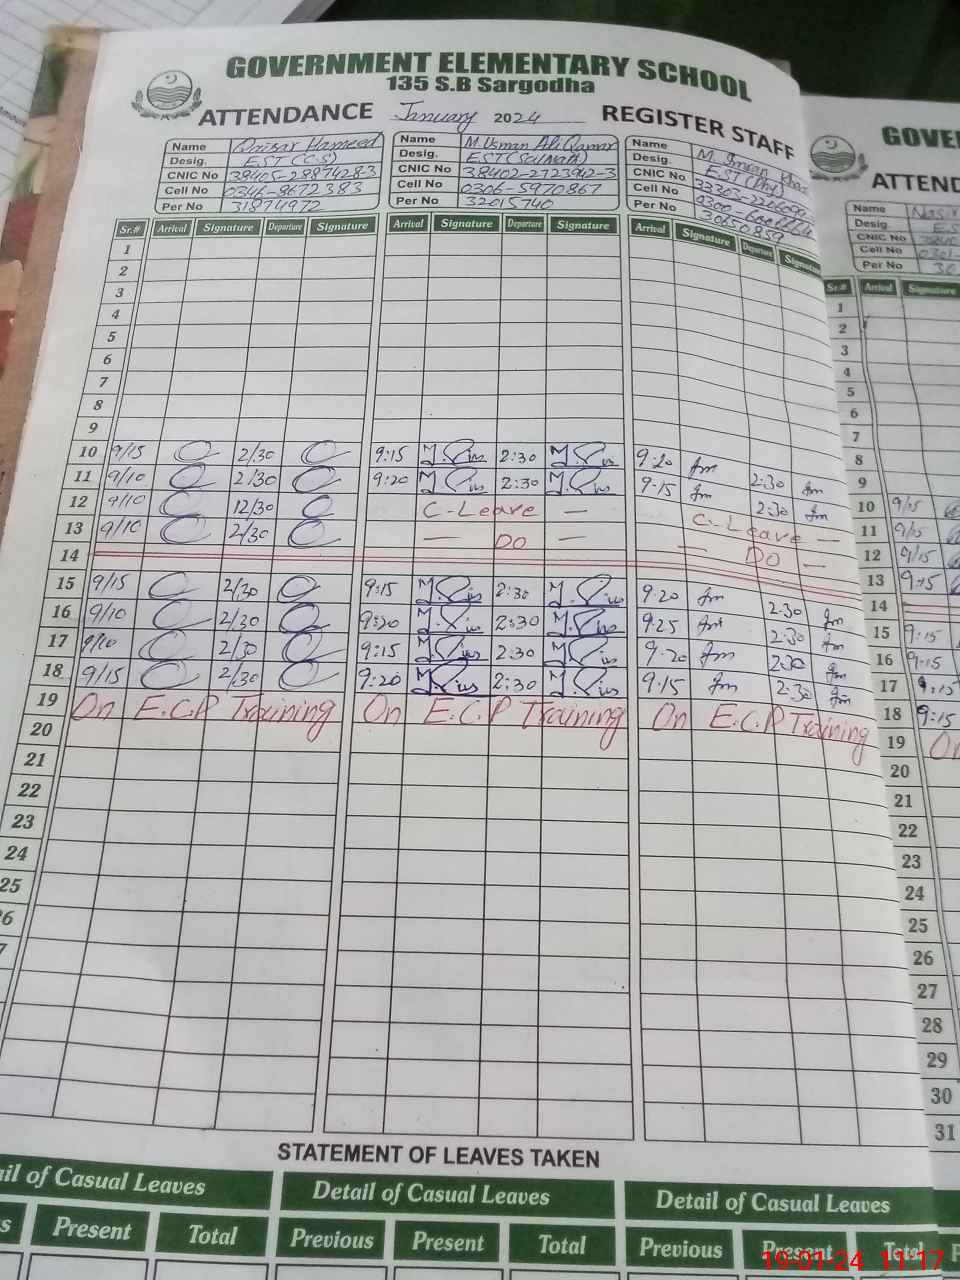 GOVERNMENT ELEMENTARY SCHOOL
135 S.B Sargodha
ATTENDANCE January 2024 REGISTER STAFF
Name Qaisar Hameed
Desig. EST (C.S)
CNIC No 38405-2887428-3
Cell No 0346-8672383
Per No 31874972
Name M.Usman Ali Qamar
Desig. EST(Sci Math)
CNIC No 38402-2723942-3
Cell No 0306-5970867
Per No 32015740
Name M. Imran Khan
Desig. EST (Phy)
CNIC No
Cell No
Per No 30650859
Sr.# Arrival Signature Departure Signature Arrival Signature Departure Signature Arrival Signature Departure Signature
1
2
3
4
5
6
7
8
9
10 9/15 2/30 9:15 2:30 9:20 2:30
11 9/10 2/30 9:20 2:30 9:15 2:30
12 9/10 12/30 C-Leave — C-Leave —
13 9/10 2/30 — Do — — Do —
14
15 9/15 2/30 9:15 2:30 9:20 2:30
16 9/10 2/30 9:20 2:30 9:25 2:30
17 9/10 2/30 9:15 2:30 9:20 2:30
18 9/15 2/30 9:20 2:30 9:15 2:30
19 On E.C.P Training On E.C.P Training On E.C.P Training
20
21
22
23
24
25
26
7
STATEMENT OF LEAVES TAKEN
ail of Casual Leaves Detail of Casual Leaves Detail of Casual Leaves
s Present Total Previous Present Total Previous Present Total P
GOVER
ATTEND
Name Nasir
Desig. E.S
CNIC No
Cell No 0301-
Per No 30
Sr.# Arrival Signature
1
2
3
4
5
6
7
8
9
10 9/15
11 9/15
12 9/15
13 9/15
14
15 9:15
16 9:15
17 9:15
18 9:15
19 On
20
21
22
23
24
25
26
27
28
29
30
31
19-01-24 11:17